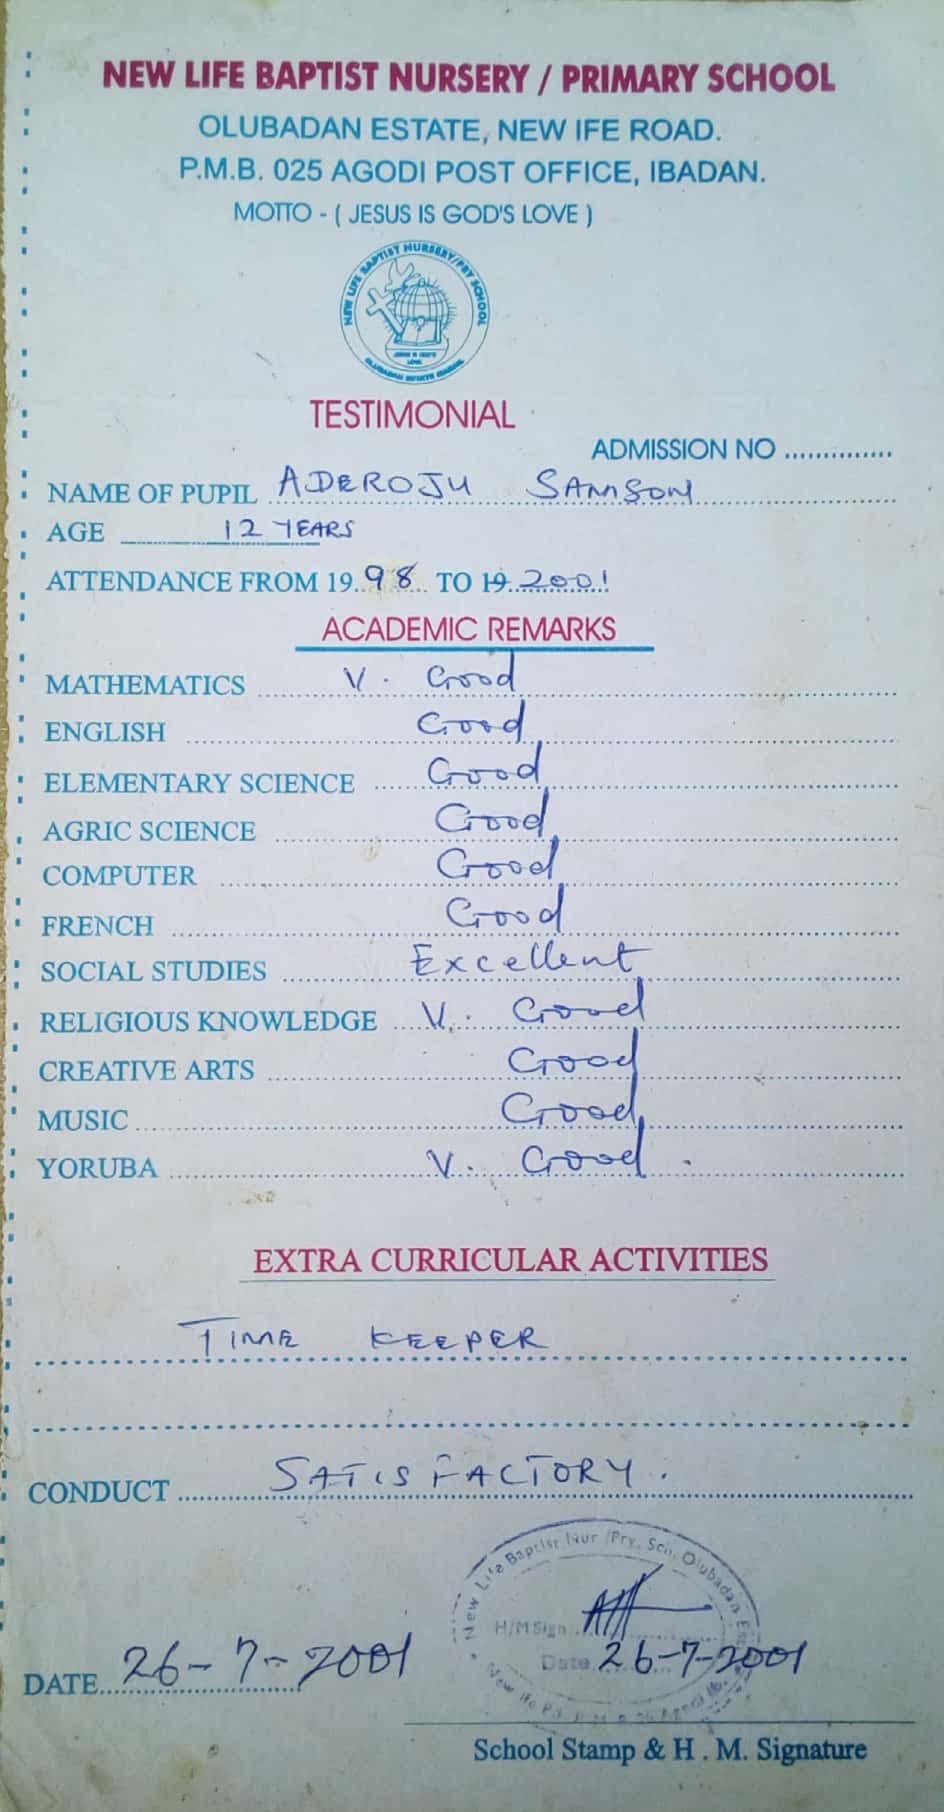 NEW LIFE BAPTIST NURSERY / PRIMARY SCHOOL
OLUBADAN ESTATE, NEW IFE ROAD.
P.M.B. 025 AGODI POST OFFICE, IBADAN.
MOTTO - ( JESUS IS GOD'S LOVE )
NEW LIFE BAPTIST NURSERY/PRY SCHOOL
JESUS IS GOD'S
LOVE
OLUBADAN ESTATE IBADAN
TESTIMONIAL
ADMISSION NO ..............
NAME OF PUPIL ADEROJU SAMSON
AGE 12 YEARS
ATTENDANCE FROM 19..98.. TO 19..2001
ACADEMIC REMARKS
MATHEMATICS V. Good
ENGLISH Good
ELEMENTARY SCIENCE Good
AGRIC SCIENCE Good
COMPUTER Good
FRENCH Good
SOCIAL STUDIES Excellent
RELIGIOUS KNOWLEDGE V. Good
CREATIVE ARTS Good
MUSIC Good
YORUBA V. Good.
EXTRA CURRICULAR ACTIVITIES
TIME KEEPER
CONDUCT SATISFACTORY.
New Life Baptist Nur /Pry. Sch. Olubadan
H/M Sign
Date 26-7-2001
New Ife Rd.
DATE 26-7-2001
School Stamp & H . M. Signature